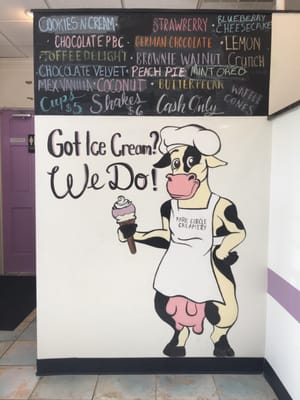 COOKIES N CREAM STRAWBERRY BLUEBERRY CHEESECAKE
CHOCOLATE PBC GERMAN CHOCOLATE LEMON
TOFFEE DELIGHT BROWNIE WALNUT CRUNCH
CHOCOLATE VELVET PEACH PIE MINT OREO
MEX. VANILLA COCONUT BUTTER PECAN WAFFLE CONES
Cups $5 Shakes $6 Cash Only
Got Ice Cream?
We Do!
PARK CIRCLE
CREAMERY